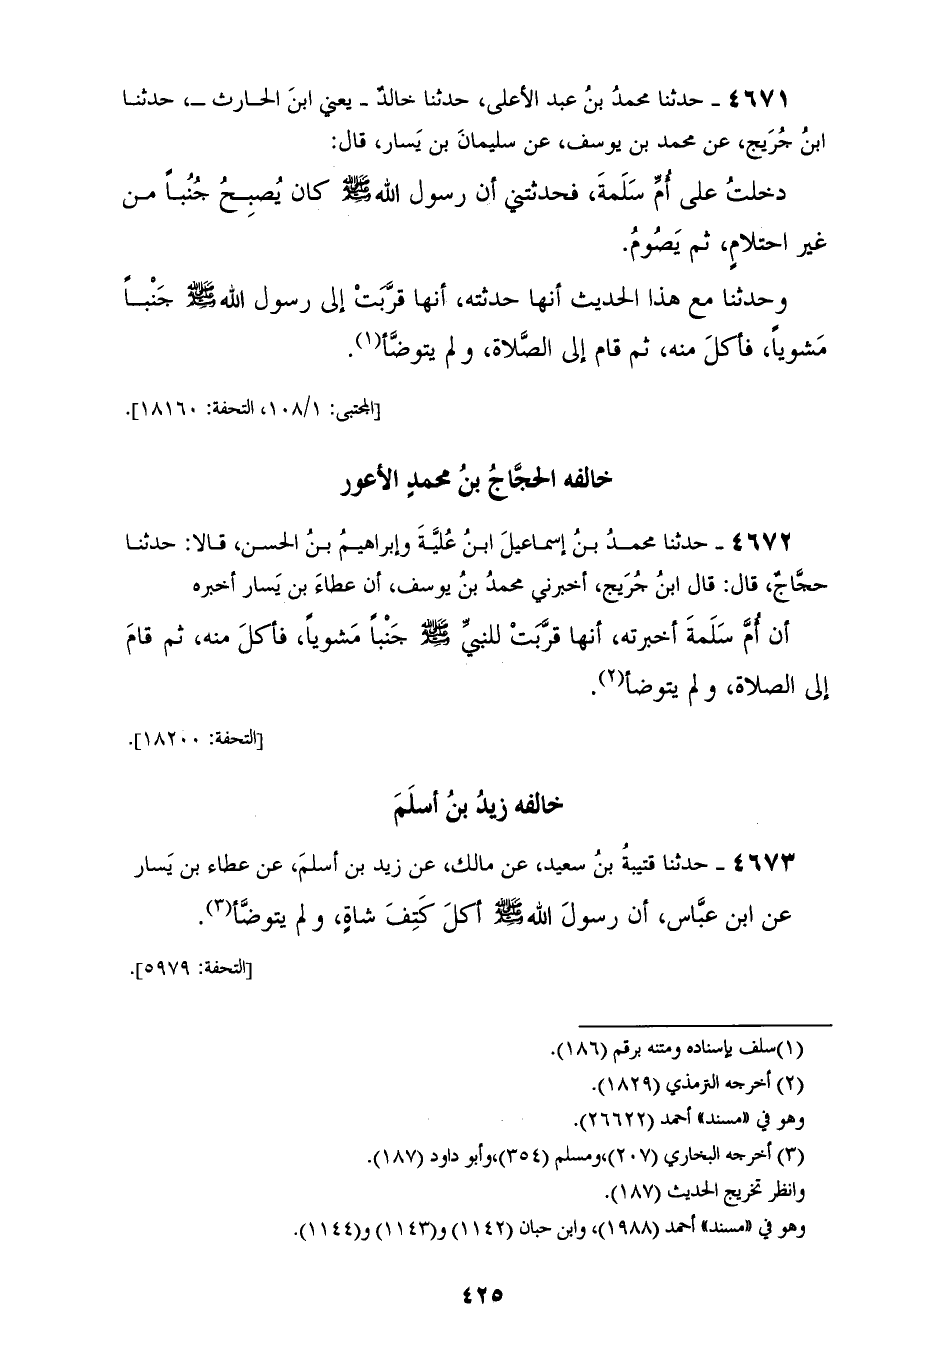 ٤٦٧١ ـ حدثنا محمدُ بنُ عبد الأعلى، حدثنا خالدٌ ـ يعني ابنَ الحـارث ـ، حدثنـا
ابنُ جُرَيج، عن محمد بن يوسف، عن سليمانَ بن يَسار، قال:
دخلتُ على أُمِّ سَلَمةَ، فحدثتني أن رسول الله ﷺ كان يُصبِـحُ جُنُبـاً مـن
غير احتلامٍ، ثم يَصُومُ.
وحدثنا مع هذا الحديث أنها حدثته، أنها قرَّبَتْ إلى رسول الله ﷺ جَنْبـاً
مَشوياً، فأكلَ منه، ثم قام إلى الصَّلاة، ولم يتوضَّأ(١).
[المجتبى: ١٠٨/١، التحفة: ١٨١٦٠].
خالفه الحجَّاجُ بنُ محمدٍ الأعور
٤٦٧٢ ـ حدثنا محمـدُ بـنُ إسمـاعيلَ ابـنُ عُليَّـةَ وإبراهيـمُ بـنُ الحسن، قـالا: حدثنـا
حجَّاجٌ، قال: قال ابنُ جُرَيج، أخبرني محمدُ بنُ يوسف، أن عطاءَ بن يَسار أخبره
أن أُمَّ سَلَمةَ أخبرته، أنها قرَّبَتْ للنبيِّ ﷺ جَنْباً مَشوياً، فأكلَ منه، ثم قامَ
إلى الصلاة، ولم يتوضأ(٢).
[التحفة: ١٨٢٠٠].
خالفه زيدُ بنُ أسلَمَ
٤٦٧٣ ـ حدثنا قتيبةُ بنُ سعيد، عن مالك، عن زيد بن أسلمَ، عن عطاء بن يَسار
عن ابن عبَّاس، أن رسولَ الله ﷺ أكلَ كَتِفَ شاةٍ، ولم يتوضَّأ(٣).
[التحفة: ٥٩٧٩].
(١) سلف بإسناده ومتنه برقم (١٨٦).
(٢) أخرجه الترمذي (١٨٢٩).
وهو في «مسند» أحمد (٢٦٦٢٢).
(٣) أخرجه البخاري (٢٠٧)،ومسلم (٣٥٤)،وأبو داود (١٨٧).
وانظر تخريج الحديث (١٨٧).
وهو في «مسند» أحمد (١٩٨٨)، وابن حبان (١١٤٢) و(١١٤٣) و(١١٤٤).
٤٢٥